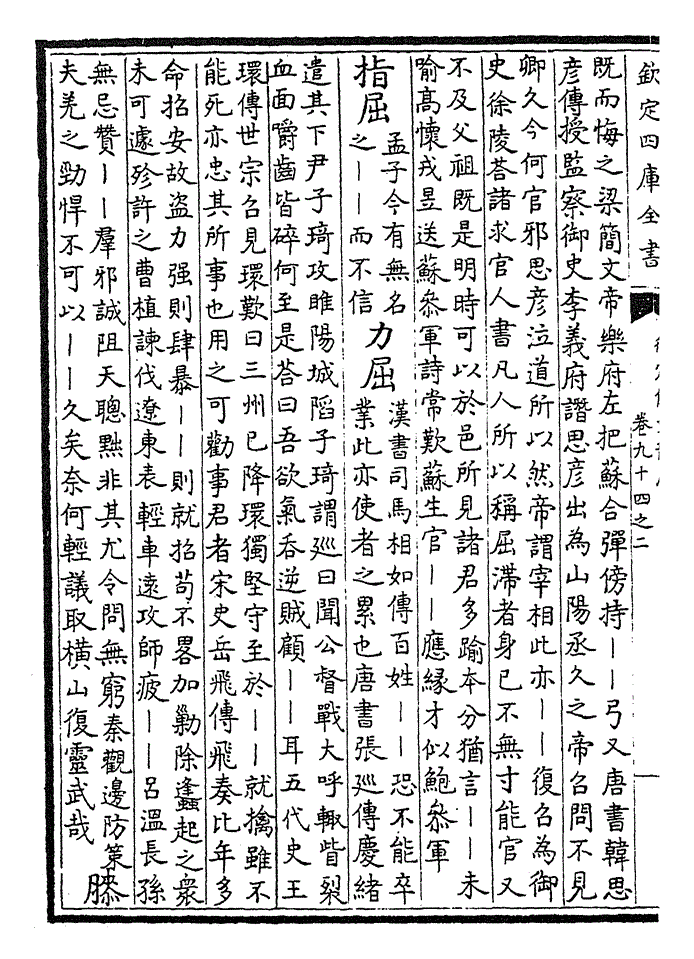 欽定四庫全書
卷九十四之二
既而悔之梁簡文帝樂府左把蘇合彈傍持||弓又唐書韓思
彥傳授監察御史李義府譖思彥出為山陽丞久之帝召問不見
卿久今何官邪思彥泣道所以然帝謂宰相此亦||復召為御
史徐陵荅諸求官人書凡人所以稱屈滯者身已不無寸能官又
不及父祖既是明時可以於邑所見諸君多踰本分猶言||未
喻髙懷戎昱送蘇叅軍詩常歎蘇生官||應縁才似鮑叅軍
指屈
孟子今有無名
之||而不信
力屈
漢書司馬相如傳百姓||恐不能卒
業此亦使者之累也唐書張廵傳慶緒
遣其下尹子琦攻睢陽城謟子琦謂廵曰聞公督戰大呼輙眥裂
血面嚼齒皆碎何至是荅曰吾欲氣吞逆賊顧||耳五代史王
環傳世宗召見環歎曰三州已降環獨堅守至於||就擒雖不
能死亦忠其所事也用之可勸事君者宋史岳飛傳飛奏比年多
命招安故盗力强則肆暴||則就招苟不畧加勦除蠭起之衆
未可遽殄許之曹植諫伐遼東表輕車遠攻師疲||呂溫長孫
無忌贊||羣邪誠阻天聰黜非其尤令問無窮秦觀邊防策
夫羌之勁悍不可以||久矣奈何輕議取橫山復靈武哉
膝